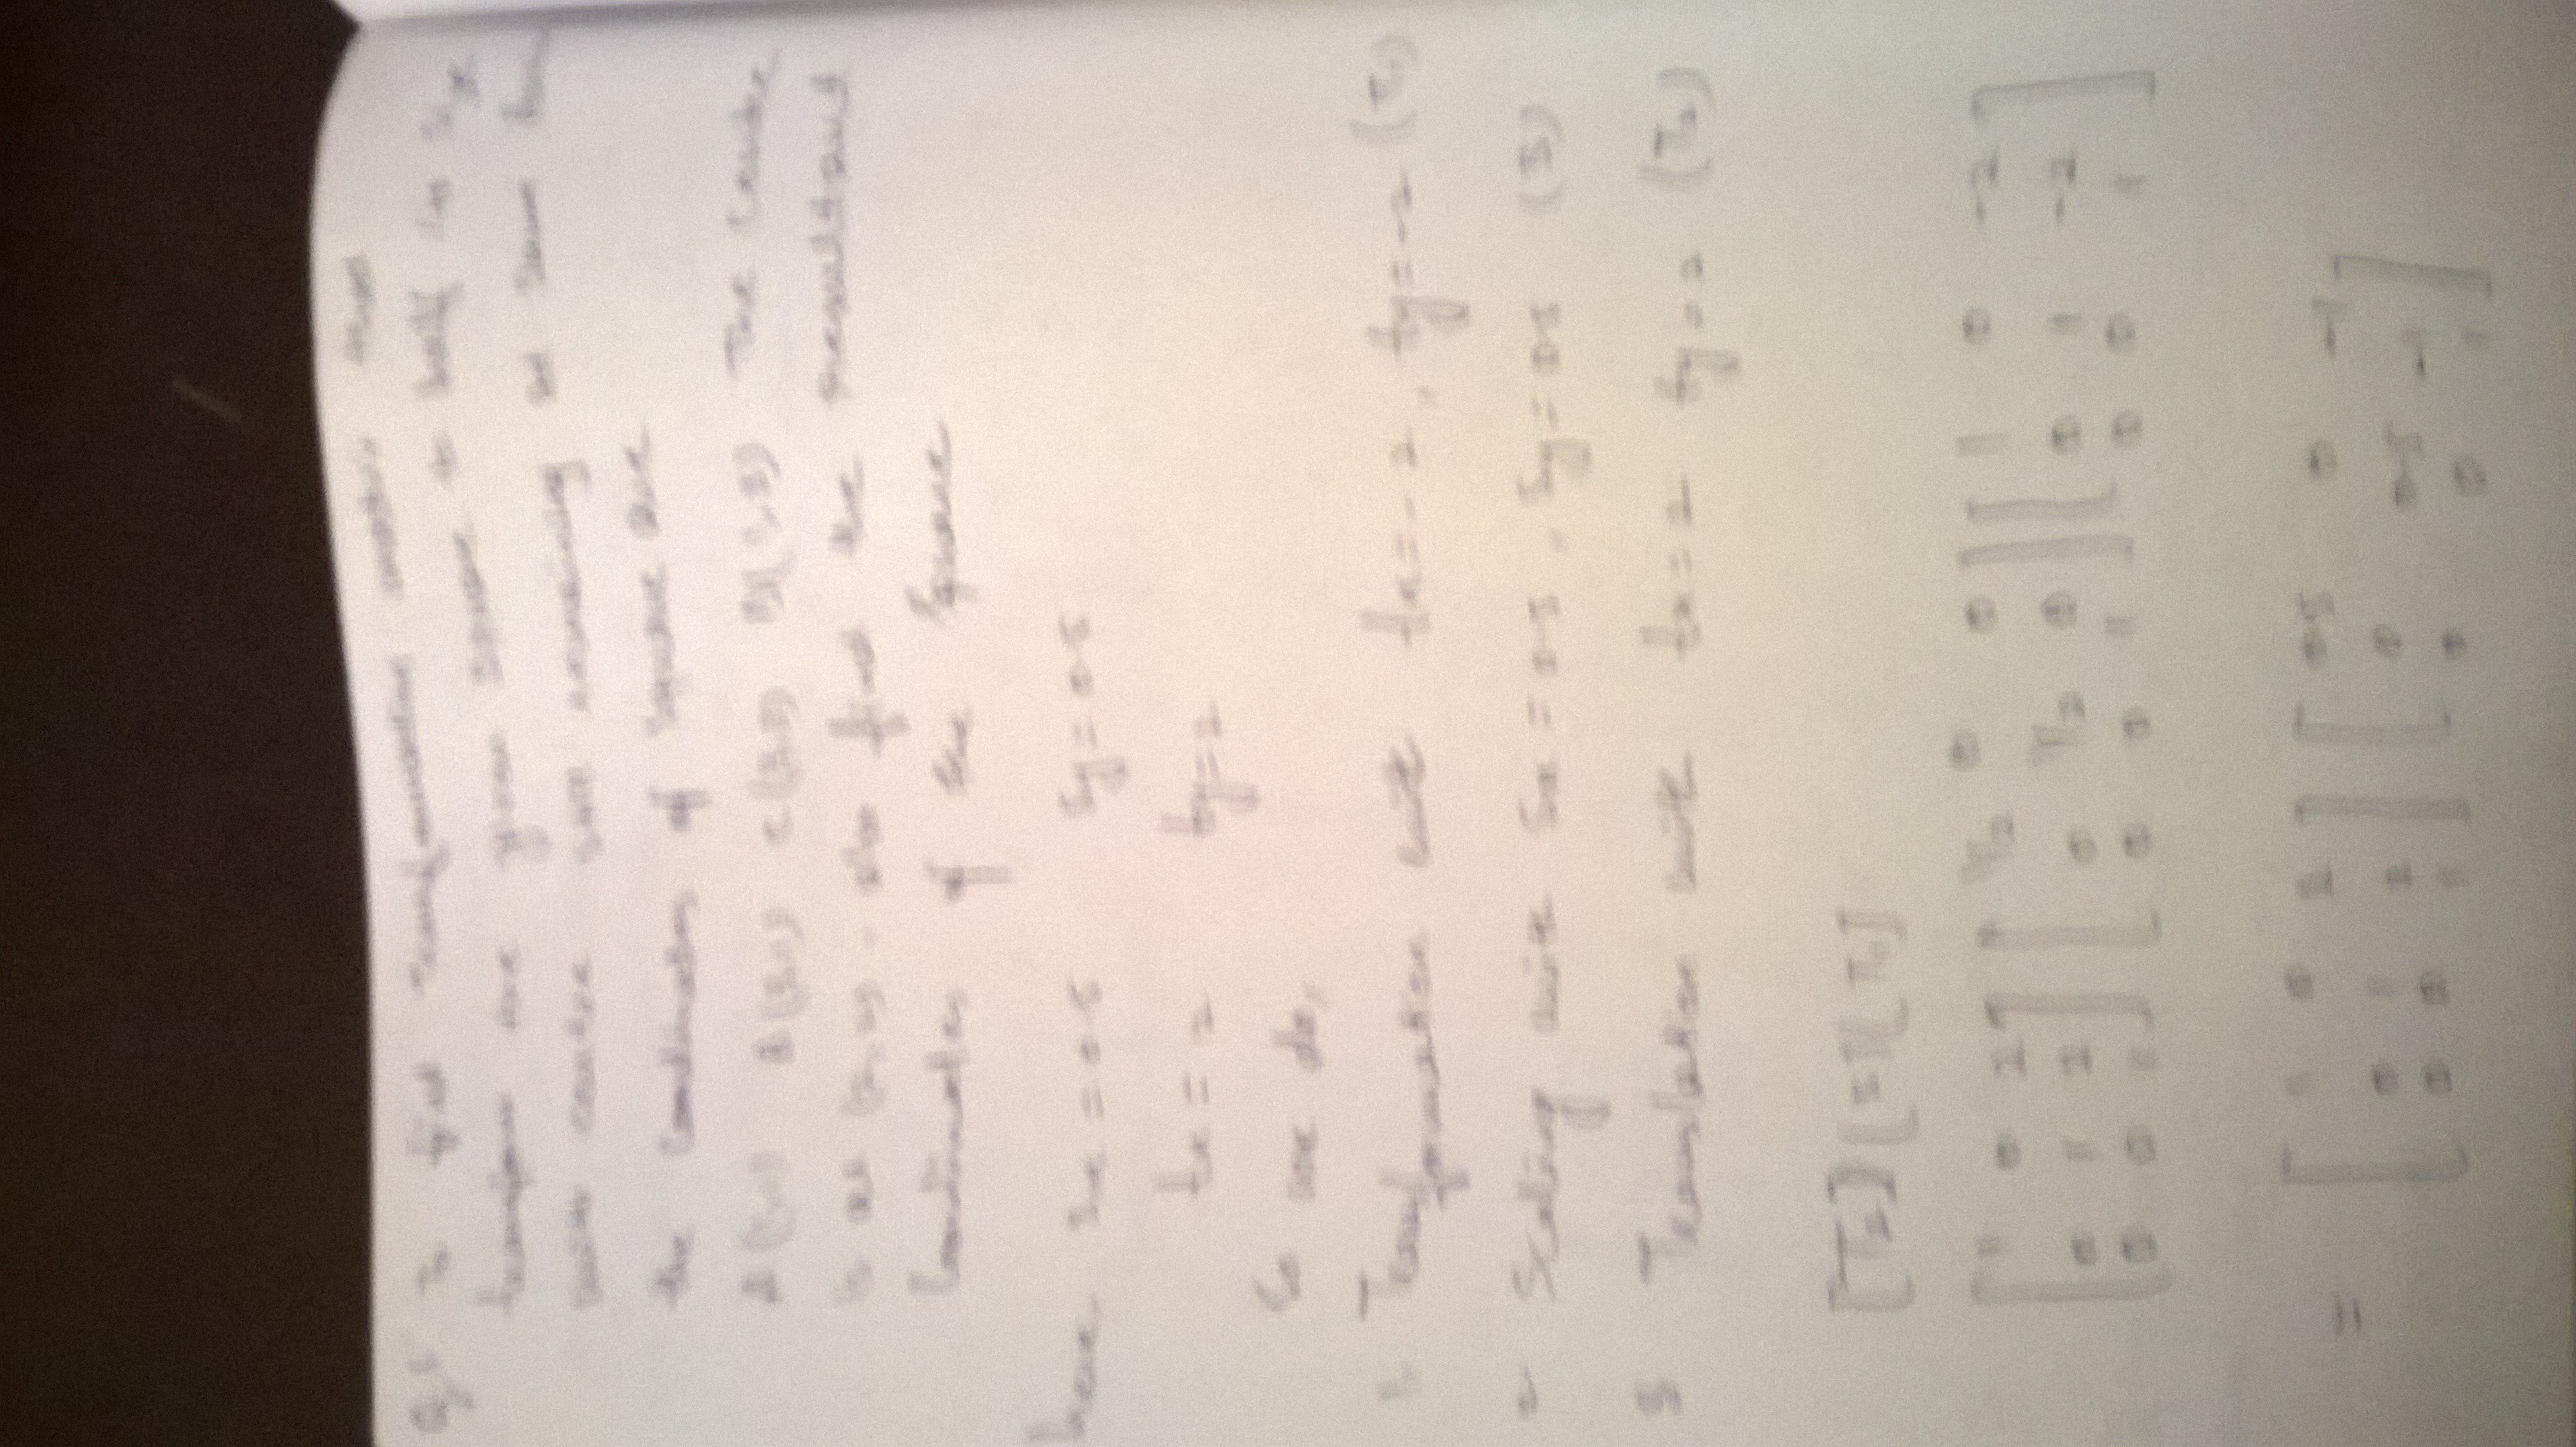 Q5 To find Transformation matrix that
transform the given square to half its size
with centre still remaining at same
the coordinates of square are
A(1,1) B(3,1) C(3,3) D(1,3) The centre
is at (2,2). also find the resultant
Coordinates of the square
here Sx = 0.5 Sy = 0.5
tx = 2 ty = 2
So we do,
1. Translation with tx = -2, ty = -2 (T1)
2 Scaling with Sx = 0.5, Sy = 0.5 (S)
3 Translation with tx = 2 ty = 2 (T2)
[T2][S][T1]
[1 0 2] [1/2 0 0] [1 0 -2]
[0 1 2] [0 1/2 0] [0 1 -2]
[0 0 1] [0 0 1] [0 0 1]
= [1 0 2] [0.5 0 -1]
[0 1 2] [0 0.5 -1]
[0 0 1] [0 0 1]